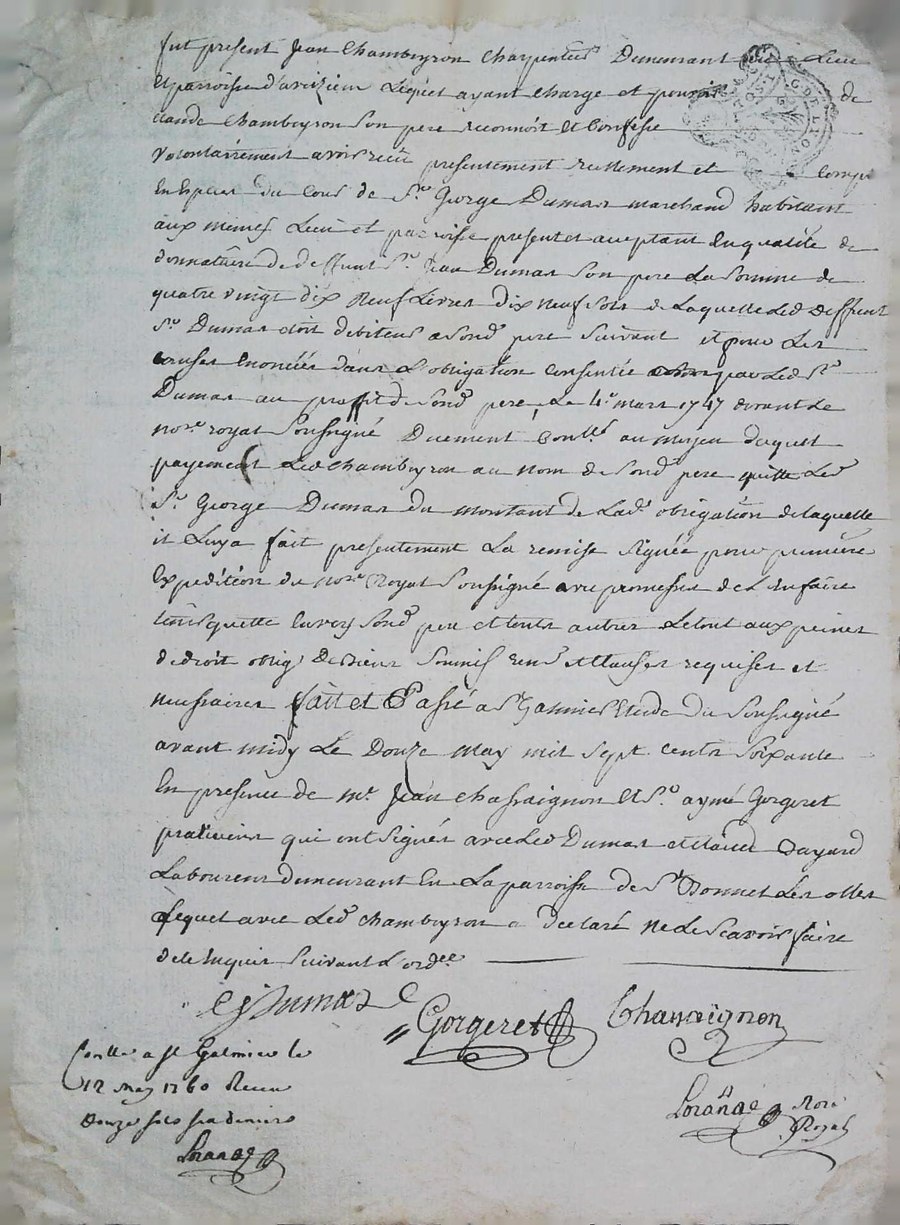 fut présent Jean Chambeyron Charpentier Demeurant Lieu
Et parroisse d'avizieu Lequel ayant Charge et pouvoir de
claude Chambeyron Son pere reconnoit Et Confesse
Volontairement avoir recu présentement reellement et Comp
En Especes du Cour de Sr. George Dumas marchand habitant
aux memes Lieu et parroisse présent et acceptant En qualité de
donnataire de deffunt Sr. Jean Dumas Son pere La Somme de
quatre vingt dix Neuf Livres dix neuf Sols de Laquelle Led. deffunt
Sr. Dumas étoit debiteur a Sond. pere Suivant et pour Les
causes Enoncées dans L'obligation Consentie par Led. Sr.
Dumas au proffit de Sond. pere, Le 4e mars 1747 devant Le
Nore. royal Soussigné Duement Conllé au moyen duquel
payement Led. Chambeyron au nom de Sond. pere quitte Led.
Sr. George Dumas du montant de Lad. obligation de laquelle
il Luy a fait présentement La remise Signée pour premiere
Expedition du Nore. Royal Soussigné avec promesse de L'en faire
tenir quitte Envers Sond. pere et tous autres Le tout aux peines
de droit oblig. de Biens Soumis. renon. et Clauses requises et
necessaires fait et Passé a St. Galmier Etude du Soussigné
avant midy Le Douze May mil Sept Cents Soixante
En presence de Me. Jean Chassaignon Et Sr. aymé Gorgeret
praticiens qui ont Signés avec Led. Dumas et Claude Bayard
Laboureur demeurant En La parroisse de St. Bonnet Les olles
Lequel avec Led. Chambeyron a Declaré Ne Le Scavoir faire
de ce Enquis Suivant L'ordce.
Dumas
Gorgeret Chassaignon
Conllé a St Galmier le
12 May 1760 Recu
Douze sols six deniers
Lorange
Lorange Nore
Royal